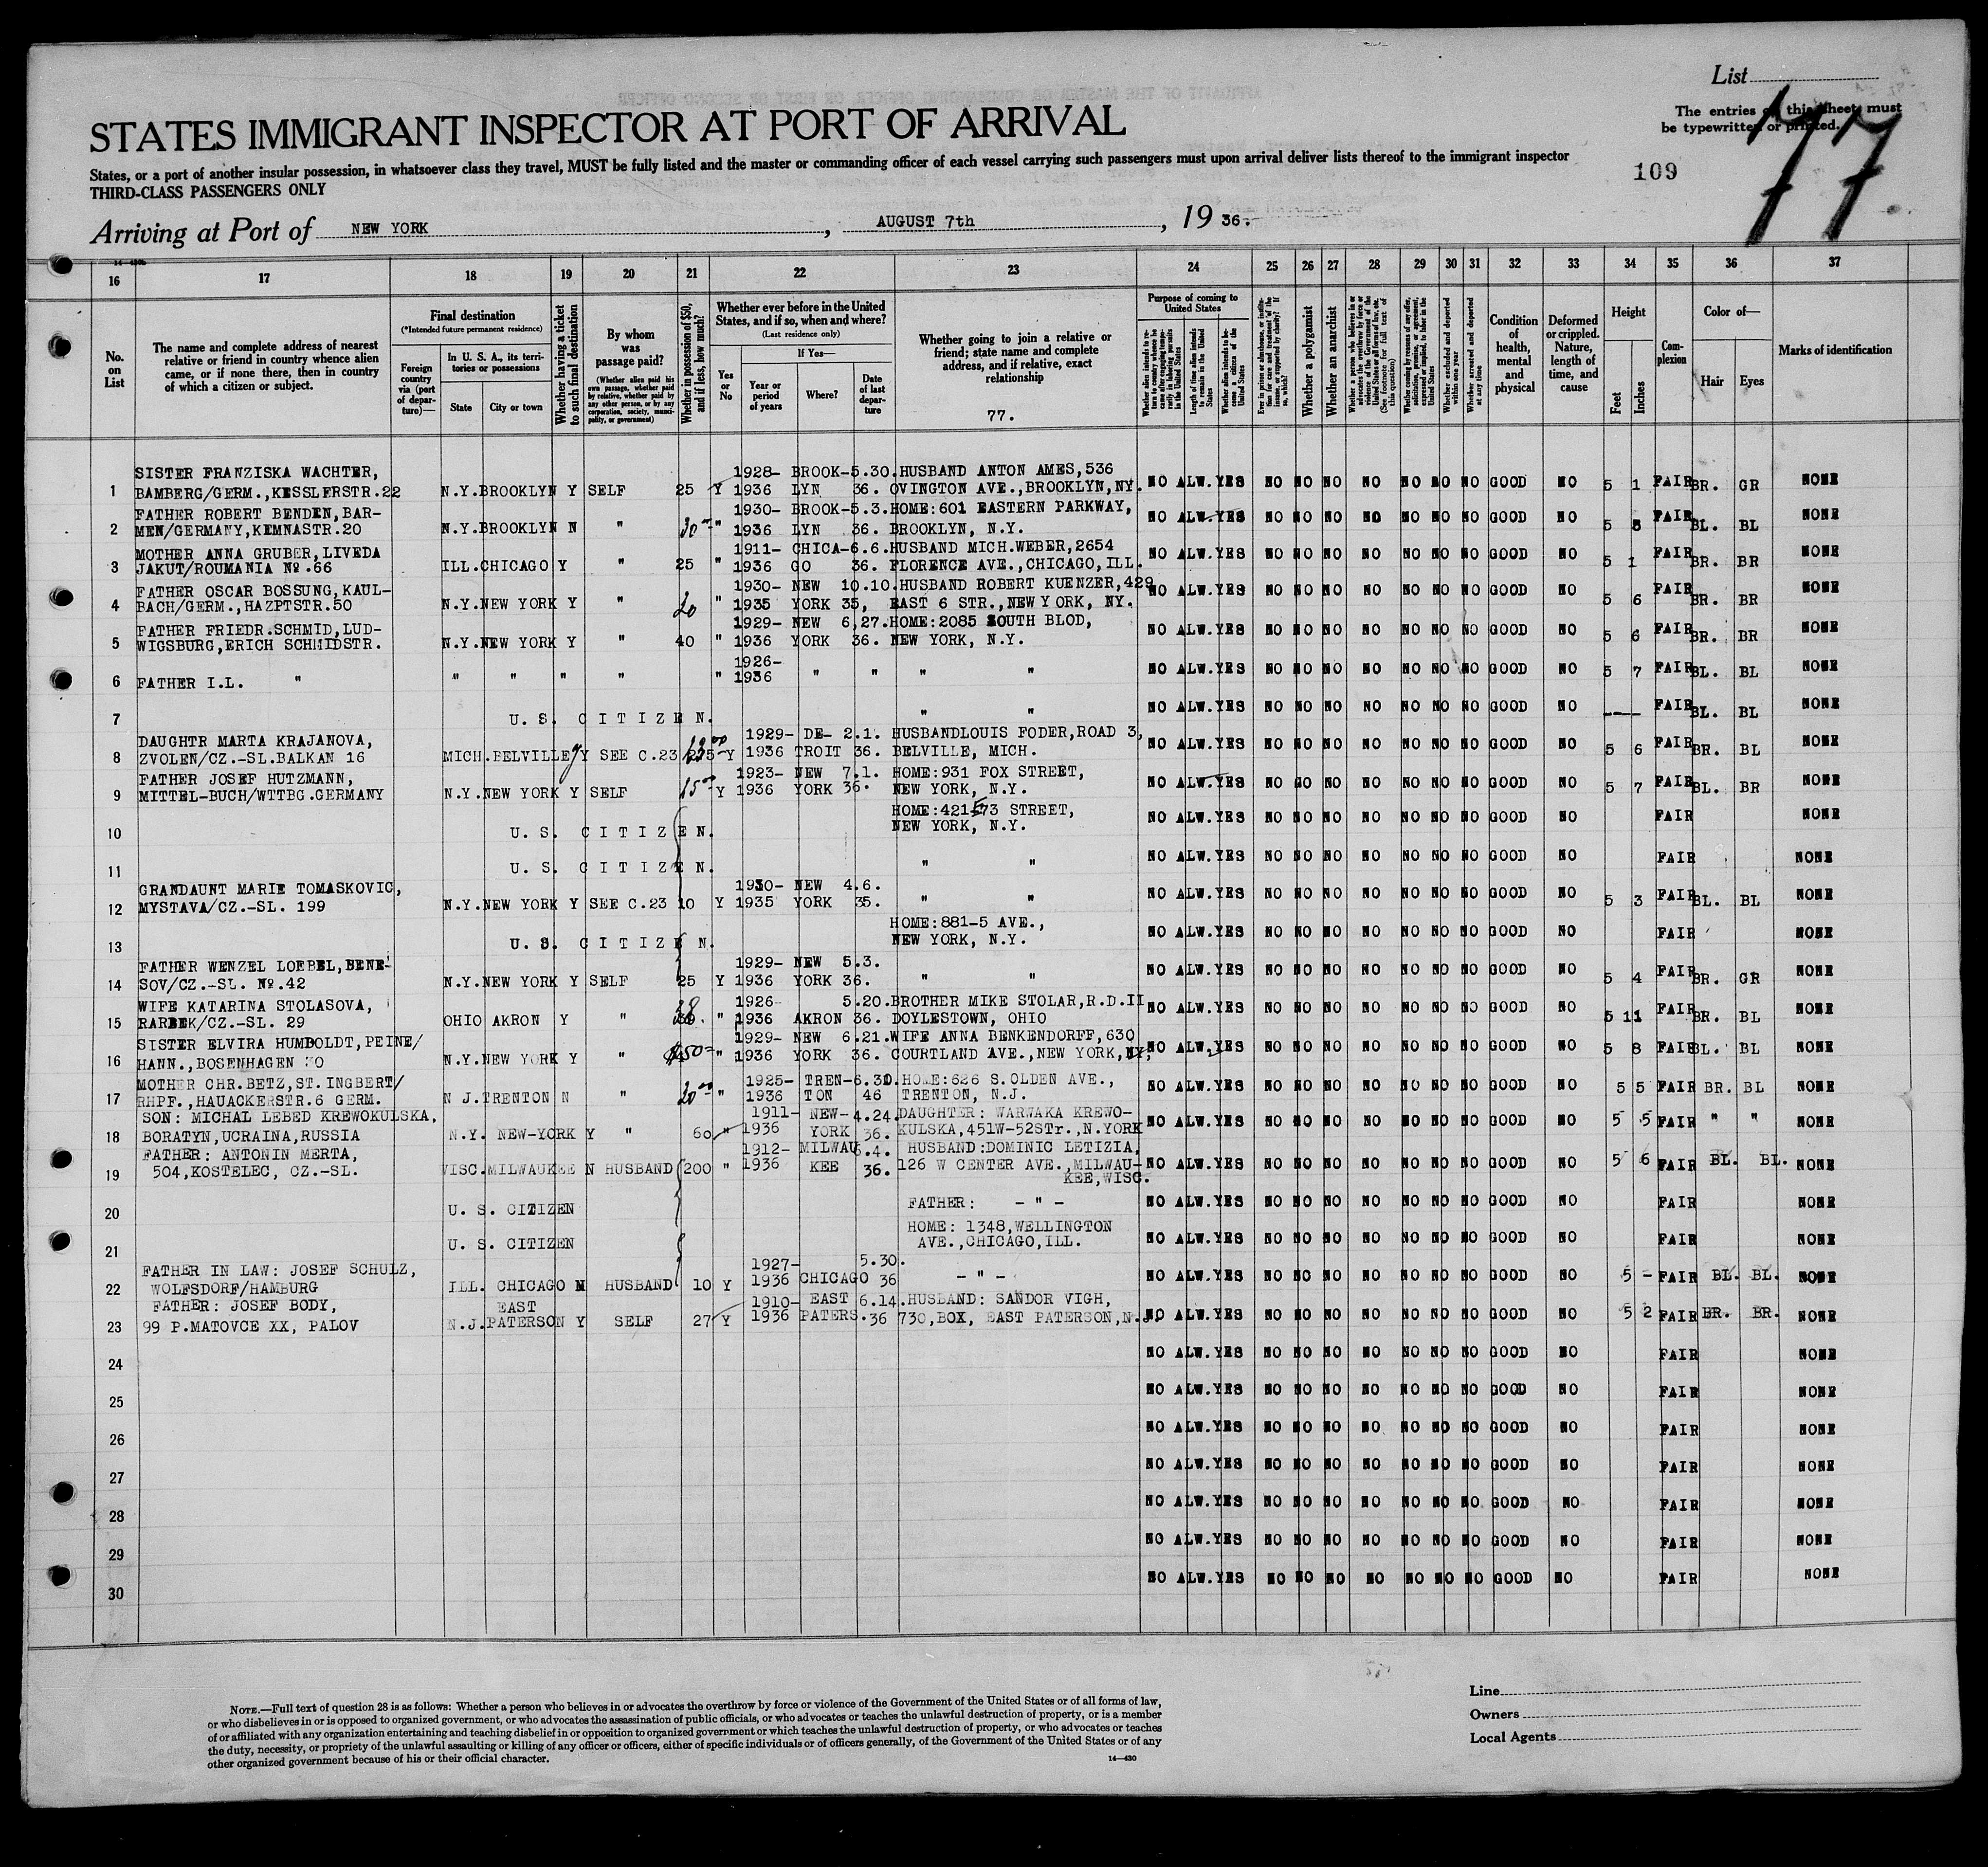 List
The entries on this sheet must
be typewritten or printed.
77
109
STATES IMMIGRANT INSPECTOR AT PORT OF ARRIVAL
States, or a port of another insular possession, in whatsoever class they travel, MUST be fully listed and the master or commanding officer of each vessel carrying such passengers must upon arrival deliver lists thereof to the immigrant inspector
THIRD-CLASS PASSENGERS ONLY
Arriving at Port of NEW YORK, AUGUST 7th, 19 36.
16 17 18 19 20 21 22 23 24 25 26 27 28 29 30 31 32 33 34 35 36 37
No. on List
The name and complete address of nearest relative or friend in country whence alien came, or if none there, then in country of which a citizen or subject.
Final destination
(*Intended future permanent residence)
Foreign country via (port of departure)—
In U. S. A., its territories or possessions
State
City or town
Whether having a ticket to such final destination
By whom was passage paid?
(Whether alien paid his own passage, whether paid by relative, whether paid by any other person, or by any corporation, society, municipality, or government)
Whether in possession of $50, and if less, how much?
Whether ever before in the United States, and if so, when and where?
(Last residence only)
If Yes—
Yes or No
Year or period of years
Where?
Date of last departure
Whether going to join a relative or friend; state name and complete address, and if relative, exact relationship
77.
Purpose of coming to United States
Whether a polygamist
Whether an anarchist
Whether excluded and deported within one year
Whether arrested and deported at any time
Condition of health, mental and physical
Deformed or crippled. Nature, length of time, and cause
Height
Feet
Inches
Complexion
Color of—
Hair
Eyes
Marks of identification
SISTER FRANZISKA WACHTER, 1928- BROOK- 5.30. HUSBAND ANTON AMES,536
1 BAMBERG/GERM.,KESSLERSTR.22 N.Y. BROOKLYN Y SELF 25 Y 1936 LYN 36. OVINGTON AVE.,BROOKLYN,NY. NO ALW. YES NO NO NO NO NO NO NO GOOD NO 5 1 FAIR BR. GR NONE
FATHER ROBERT BENDEN,BAR- 1930- BROOK- 5.3. HOME:601 EASTERN PARKWAY,
2 MEN/GERMANY,KEMNASTR.20 N.Y. BROOKLYN N " 30 " 1936 LYN 36. BROOKLYN, N.Y. NO ALW. YES NO NO NO NO NO NO NO GOOD NO 5 8 FAIR BL. BL NONE
MOTHER ANNA GRUBER,LIVEDA 1911- CHICA- 6.6. HUSBAND MICH.WEBER,2654
3 JAKUT/ROUMANIA No.66 ILL. CHICAGO Y " 25 " 1936 GO 36. FLORENCE AVE.,CHICAGO,ILL. NO ALW. YES NO NO NO NO NO NO NO GOOD NO 5 1 FAIR BR. BR NONE
FATHER OSCAR BOSSUNG,KAUL- 1930- NEW 10.10. HUSBAND ROBERT KUENZER,429
4 BACH/GERM.,HAZPTSTR.50 N.Y. NEW YORK Y " 20 " 1935 YORK 35, EAST 6 STR.,NEW YORK, NY. NO ALW. YES NO NO NO NO NO NO NO GOOD NO 5 6 FAIR BR. BR NONE
FATHER FRIEDR.SCHMID,LUD- 1929- NEW 6.27. HOME:2085 SOUTH BLOD,
5 WIGSBURG,ERICH SCHMIDSTR. N.Y. NEW YORK Y " 40 " 1936 YORK 36. NEW YORK, N.Y. NO ALW. YES NO NO NO NO NO NO NO GOOD NO 5 6 FAIR BR. BR NONE
1926-
6 FATHER I.L. " " " " " " 1936 " " " " NO ALW. YES NO NO NO NO NO NO NO GOOD NO 5 7 FAIR BL. BL NONE
7 U. S. C I T I Z E N. " " NO ALW. YES NO NO NO NO NO NO NO GOOD NO --- FAIR BL. BL NONE
DAUGHTR MARTA KRAJANOVA, 1929- DE- 2.1. HUSBANDLOUIS FODER,ROAD 3,
8 ZVOLEN/CZ.-SL.BALKAN 16 MICH. BELVILLE Y SEE C.23 Y 1936 TROIT 36. BELVILLE, MICH. NO ALW. YES NO NO NO NO NO NO NO GOOD NO 5 6 FAIR BR. BL NONE
FATHER JOSEF HUTZMANN, 1923- NEW 7.1. HOME:931 FOX STREET,
9 MITTEL-BUCH/WTTBG.GERMANY N.Y. NEW YORK Y SELF 15 Y 1936 YORK 36. NEW YORK, N.Y. NO ALW. YES NO NO NO NO NO NO NO GOOD NO 5 7 FAIR BL. BR NONE
HOME:421 E 73 STREET,
10 U. S. C I T I Z E N. NEW YORK, N.Y. NO ALW. YES NO NO NO NO NO NO NO GOOD NO FAIR NONE
11 U. S. C I T I Z E N. " " NO ALW. YES NO NO NO NO NO NO NO GOOD NO FAIR NONE
GRANDAUNT MARIE TOMASKOVIC, 1930- NEW 4.6.
12 MYSTAVA/CZ.-SL. 199 N.Y. NEW YORK Y SEE C.23 10 Y 1935 YORK 35. " " NO ALW. YES NO NO NO NO NO NO NO GOOD NO 5 3 FAIR BL. BL NONE
HOME:881-5 AVE.,
13 U. S. C I T I Z E N. NEW YORK, N.Y. NO ALW. YES NO NO NO NO NO NO NO GOOD NO FAIR NONE
FATHER WENZEL LOEBEL,BENE- 1929- NEW 5.3.
14 SOV/CZ.-SL. No.42 N.Y. NEW YORK Y SELF 25 Y 1936 YORK 36. " " NO ALW. YES NO NO NO NO NO NO NO GOOD NO 5 4 FAIR BR. GR NONE
WIFE KATARINA STOLASOVA, 1926- 5.20. BROTHER MIKE STOLAR,R.D.II
15 RARBEK/CZ.-SL. 29 OHIO AKRON Y " 38. " 1936 AKRON 36. DOYLESTOWN, OHIO NO ALW. YES NO NO NO NO NO NO NO GOOD NO 5 11 FAIR BR. BL NONE
SISTER ELVIRA HUMBOLDT,PEINE/ 1929- NEW 6.21. WIFE ANNA BENKENDORFF,630
16 HANN.,BOSENHAGEN N.Y. NEW YORK Y " $50 " 1936 YORK 36. COURTLAND AVE.,NEW YORK,NY, NO ALW. YES NO NO NO NO NO NO NO GOOD NO 5 8 FAIR BL. BL NONE
MOTHER CHR.BETZ,ST.INGBERT/ 1925- TREN- HOME:626 S.OLDEN AVE.,
17 RHPF.,HAUACKERSTR.6 GERM. N J. TRENTON N " 20 " 1936 TON 46 TRENTON, N.J. NO ALW. YES NO NO NO NO NO NO NO GOOD NO 5 5 FAIR BR. BL NONE
SON: MICHAL LEBED KREWOKULSKA, 1911- NEW- 4.24. DAUGHTER: WARWAKA KREWO-
18 BORATYN,UCRAINA,RUSSIA N.Y. NEW-YORK Y " 60 " 1936 YORK 36. KULSKA,451W-52STr.,N.YORK NO ALW. YES NO NO NO NO NO NO NO GOOD NO 5 5 FAIR " " NONE
FATHER: ANTONIN MERTA, 1912- MILWAU 6.4. HUSBAND:DOMINIC LETIZIA,
19 504,KOSTELEC, CZ.-SL. WISC. MILWAUKEE N HUSBAND 200 " 1936 KEE 36. 126 W CENTER AVE.,MILWAU- NO ALW. YES NO NO NO NO NO NO NO GOOD NO 5 6 FAIR BL. BL. NONE
KEE,WISC.
20 U. S. CITIZEN FATHER: - " - NO ALW. YES NO NO NO NO NO NO NO GOOD NO FAIR NONE
HOME: 1348,WELLINGTON
21 U. S. CITIZEN AVE.,CHICAGO,ILL. NO ALW. YES NO NO NO NO NO NO NO GOOD NO FAIR NONE
FATHER IN LAW: JOSEF SCHULZ, 1927- 5.30.
22 WOLFSDORF/HAMBURG ILL. CHICAGO N HUSBAND 10 Y 1936 CHICAGO 36 - " - NO ALW. YES NO NO NO NO NO NO NO GOOD NO 5 - FAIR BL. BL. NONE
FATHER: JOSEF BODY, EAST 1910- EAST 6.14. HUSBAND: SANDOR VIGH,
23 99 P.MATOVCE XX, PALOV N.J. PATERSON Y SELF 27 Y 1936 PATERS. 36 730,BOX, EAST PATERSON,N.J. NO ALW. YES NO NO NO NO NO NO NO GOOD NO 5 2 FAIR BR. BR. NONE
24 NO ALW. YES NO NO NO NO NO NO NO GOOD NO FAIR NONE
25 NO ALW. YES NO NO NO NO NO NO NO GOOD NO FAIR NONE
26 NO ALW. YES NO NO NO NO NO NO NO GOOD NO FAIR NONE
27 NO ALW. YES NO NO NO NO NO NO NO GOOD NO FAIR NONE
28 NO ALW. YES NO NO NO NO NO NO NO GOOD NO FAIR NONE
29 NO ALW. YES NO NO NO NO NO NO NO GOOD NO FAIR NONE
30 NO ALW. YES NO NO NO NO NO NO NO GOOD NO FAIR NONE
NOTE.—Full text of question 28 is as follows: Whether a person who believes in or advocates the overthrow by force or violence of the Government of the United States or of all forms of law,
or who disbelieves in or is opposed to organized government, or who advocates the assassination of public officials, or who advocates or teaches the unlawful destruction of property, or is a member
of or affiliated with any organization entertaining and teaching disbelief in or opposition to organized government or which teaches the unlawful destruction of property, or who advocates or teaches
the duty, necessity, or propriety of the unlawful assaulting or killing of any officer or officers, either of specific individuals or of officers generally, of the Government of the United States or of any
other organized government because of his or their official character.
14—430
Line
Owners
Local Agents